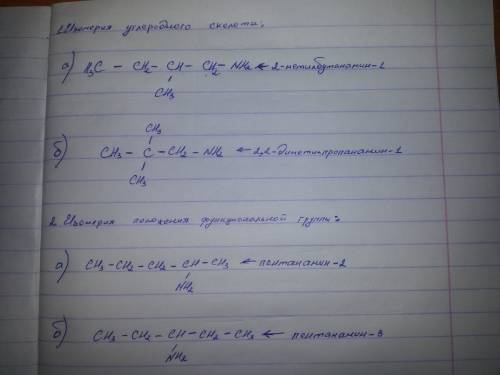 1 Изомерия углеродного скелета:
а) H₃C — CH₂ — CH — CH₂ — NH₂ ← 2-метилбутанамин-1
CH₃
CH₃
б) CH₃ — C — CH₂ — NH₂ ← 2,2-диметилпропанамин-1
CH₃
2. Изомерия положения функциональной группы:
а) CH₃ — CH₂ — CH₂ — CH — CH₃ ← пентанамин-2
NH₂
б) CH₃ — CH₂ — CH — CH₂ — CH₃ ← пентанамин-3
NH₂